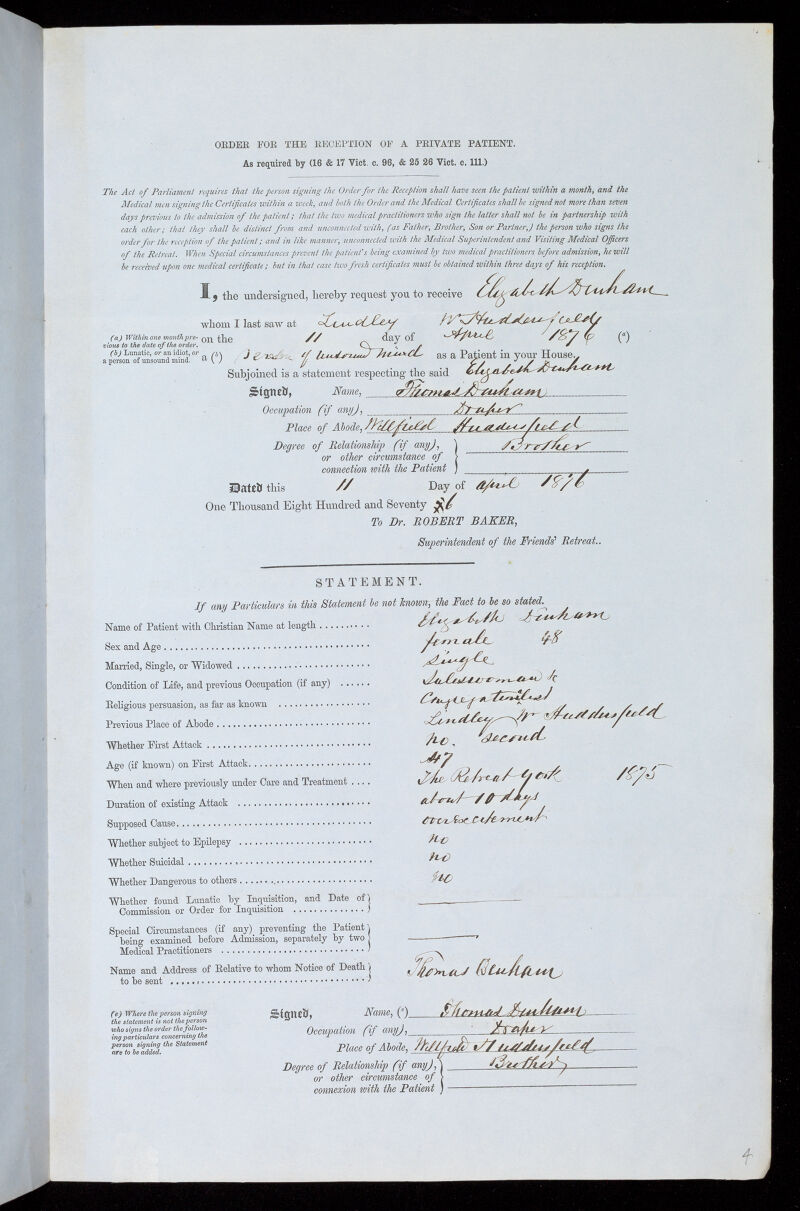 ORDER FOR THE RECEPTION OF A PRIVATE PATIENT.
As required by (16 & 17 Vict. c. 96, & 25 26 Vict. c. 111.)
The Act of Parliament requires that the person signing the Order for the Reception shall have seen the patient within a month, and the
Medical men signing the Certificates within a week, and both the Order and the Medical Certificates shall be signed not more than seven
days previous to the admission of the patient; that the two medical practitioners who sign the latter shall not be in partnership with
each other; that they shall be distinct from and unconnected with, (as Father, Brother, Son or Partner,) the person who signs the
order for the reception of the patient; and in like manner, unconnected with the Medical Superintendent and Visiting Medical Officers
of the Retreat. When Special circumstances prevent the patient's being examined by two medical practitioners before admission, he will
be received upon one medical certificate; but in that case two fresh certificates must be obtained within three days of his reception.
I, the undersigned, hereby request you to receive Elizabeth Denham
whom I last saw at Lindley Nr Huddersfield
(a) Within one month pre-
vious to the date of the order.
(b) Lunatic, or an idiot, or
a person of unsound mind.
on the 11 day of April 1876 (a)
a (b) Person of unsound mind as a Patient in your House.
Subjoined is a statement respecting the said Elizabeth Denham
Signed, Name, Thomas Denham
Occupation (if any), Draper
Place of Abode, Wellfield Huddersfield
Degree of Relationship (if any), Brother
or other circumstance of
connection with the Patient
Dated this 11 Day of april 1876
One Thousand Eight Hundred and Seventy 6
To Dr. ROBERT BAKER,
Superintendent of the Friends' Retreat..
STATEMENT.
If any Particulars in this Statement be not known, the Fact to be so stated.
Name of Patient with Christian Name at length .......... Elizabeth Denham
Sex and Age ........ female 48
Married, Single, or Widowed ........ Single
Condition of Life, and previous Occupation (if any) ...... Saleswoman
Religious persuasion, as far as known ........ Congregationalist
Previous Place of Abode ........ Lindley Nr Huddersfield
Whether First Attack ........ no. second
Age (if known) on First Attack ........ 47
When and where previously under Care and Treatment .... The Retreat York 1875
Duration of existing Attack ........ about 10 days
Supposed Cause ........ overexcitement
Whether subject to Epilepsy ........ no
Whether Suicidal ........ no
Whether Dangerous to others ........ no
Whether found Lunatic by Inquisition, and Date of
Commission or Order for Inquisition ........
Special Circumstances (if any) preventing the Patient
being examined before Admission, separately by two
Medical Practitioners ........
Name and Address of Relative to whom Notice of Death
to be sent ........ Thomas Denham
(c) Where the person signing
the statement is not the person
who signs the order the follow-
ing particulars concerning the
person signing the Statement
are to be added.
Signed, Name, (c) Thomas Denham
Occupation (if any), Draper
Place of Abode, Wellfield Huddersfield
Degree of Relationship (if any), Brother
or other circumstance of
connexion with the Patient
4